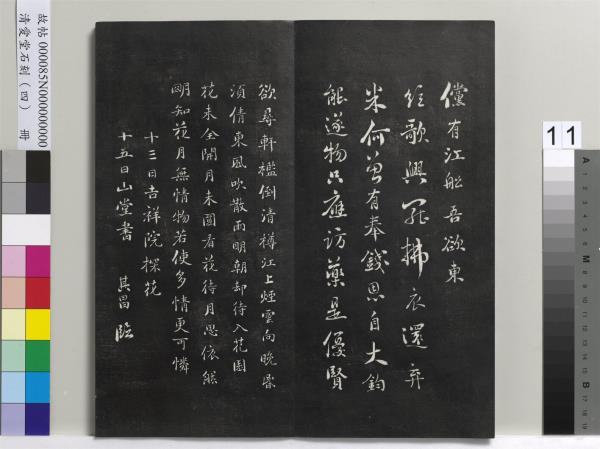 儻有江船吾欲東
短歌興罷拂衣還弃
米何曾有奉錢恩自大鈞
能遂物只應訪藥是優賢
欲尋軒檻倒清樽江上煙雲向晚昏
須倩東風吹散雨明朝却待入花園
花未全開月未圓看花待月思依然
明知花月無情物若使多情更可憐
十三日吉祥院探花
十五日山堂書 其昌臨
故帖 000085N000000000
清愛堂石刻(四) 冊
11
A 1 2 3 4 5 6 M 8 9 10 11 12 13 14 15 B 17 18 19